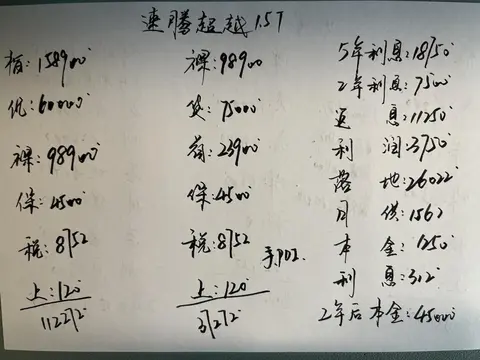 速腾超越1.5T
指:158900
优:60000
裸:98900
保:4500
税:8752
上:120
112272
裸:98900
贷:75000
首:23900
保:4500
税:8752
上:120
37272
5年利息:18750
2年利息:7500
息:11250
利润:3750
落地:116022
月供:1562
本金:1250
利息:312
2年后本金:45000